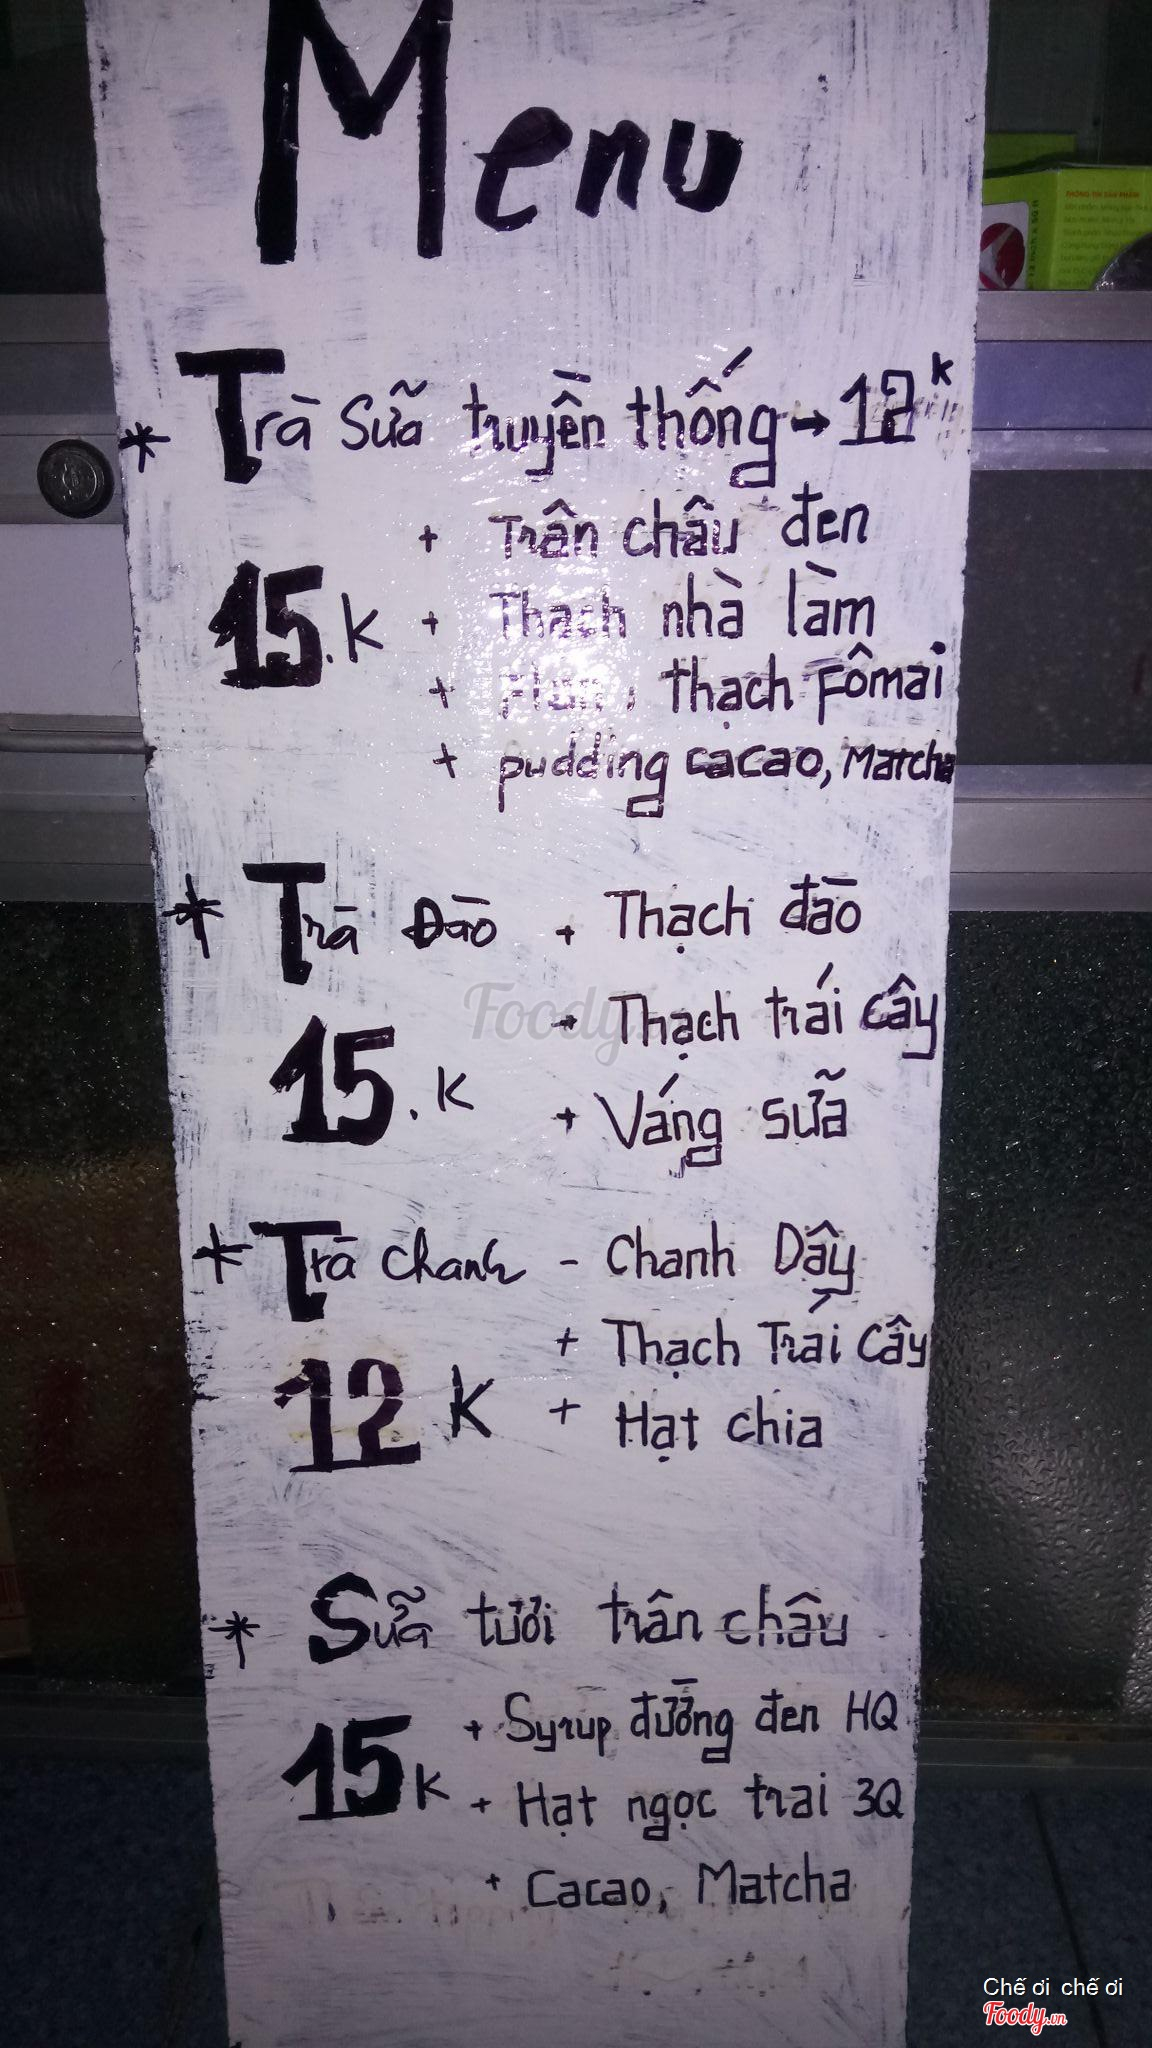 Menu
* Trà Sữa truyền thống → 12k
+ Trân châu đen
15.k + Thạch nhà làm
+ Flan, thạch Fômai
+ pudding cacao, Matcha
* Trà Đào + Thạch đào
+ Thạch trái cây
15.k
+ Váng sữa
* Trà chanh - Chanh Dây
+ Thạch Trái Cây
12k + Hạt chia
* Sữa tươi trân châu
+ Syrup đường đen HQ
15k + Hạt ngọc trai 3Q
+ Cacao, Matcha
Foody
THÔNG TIN SẢN PHẨM
Chế ơi chế ơi
Foody.vn